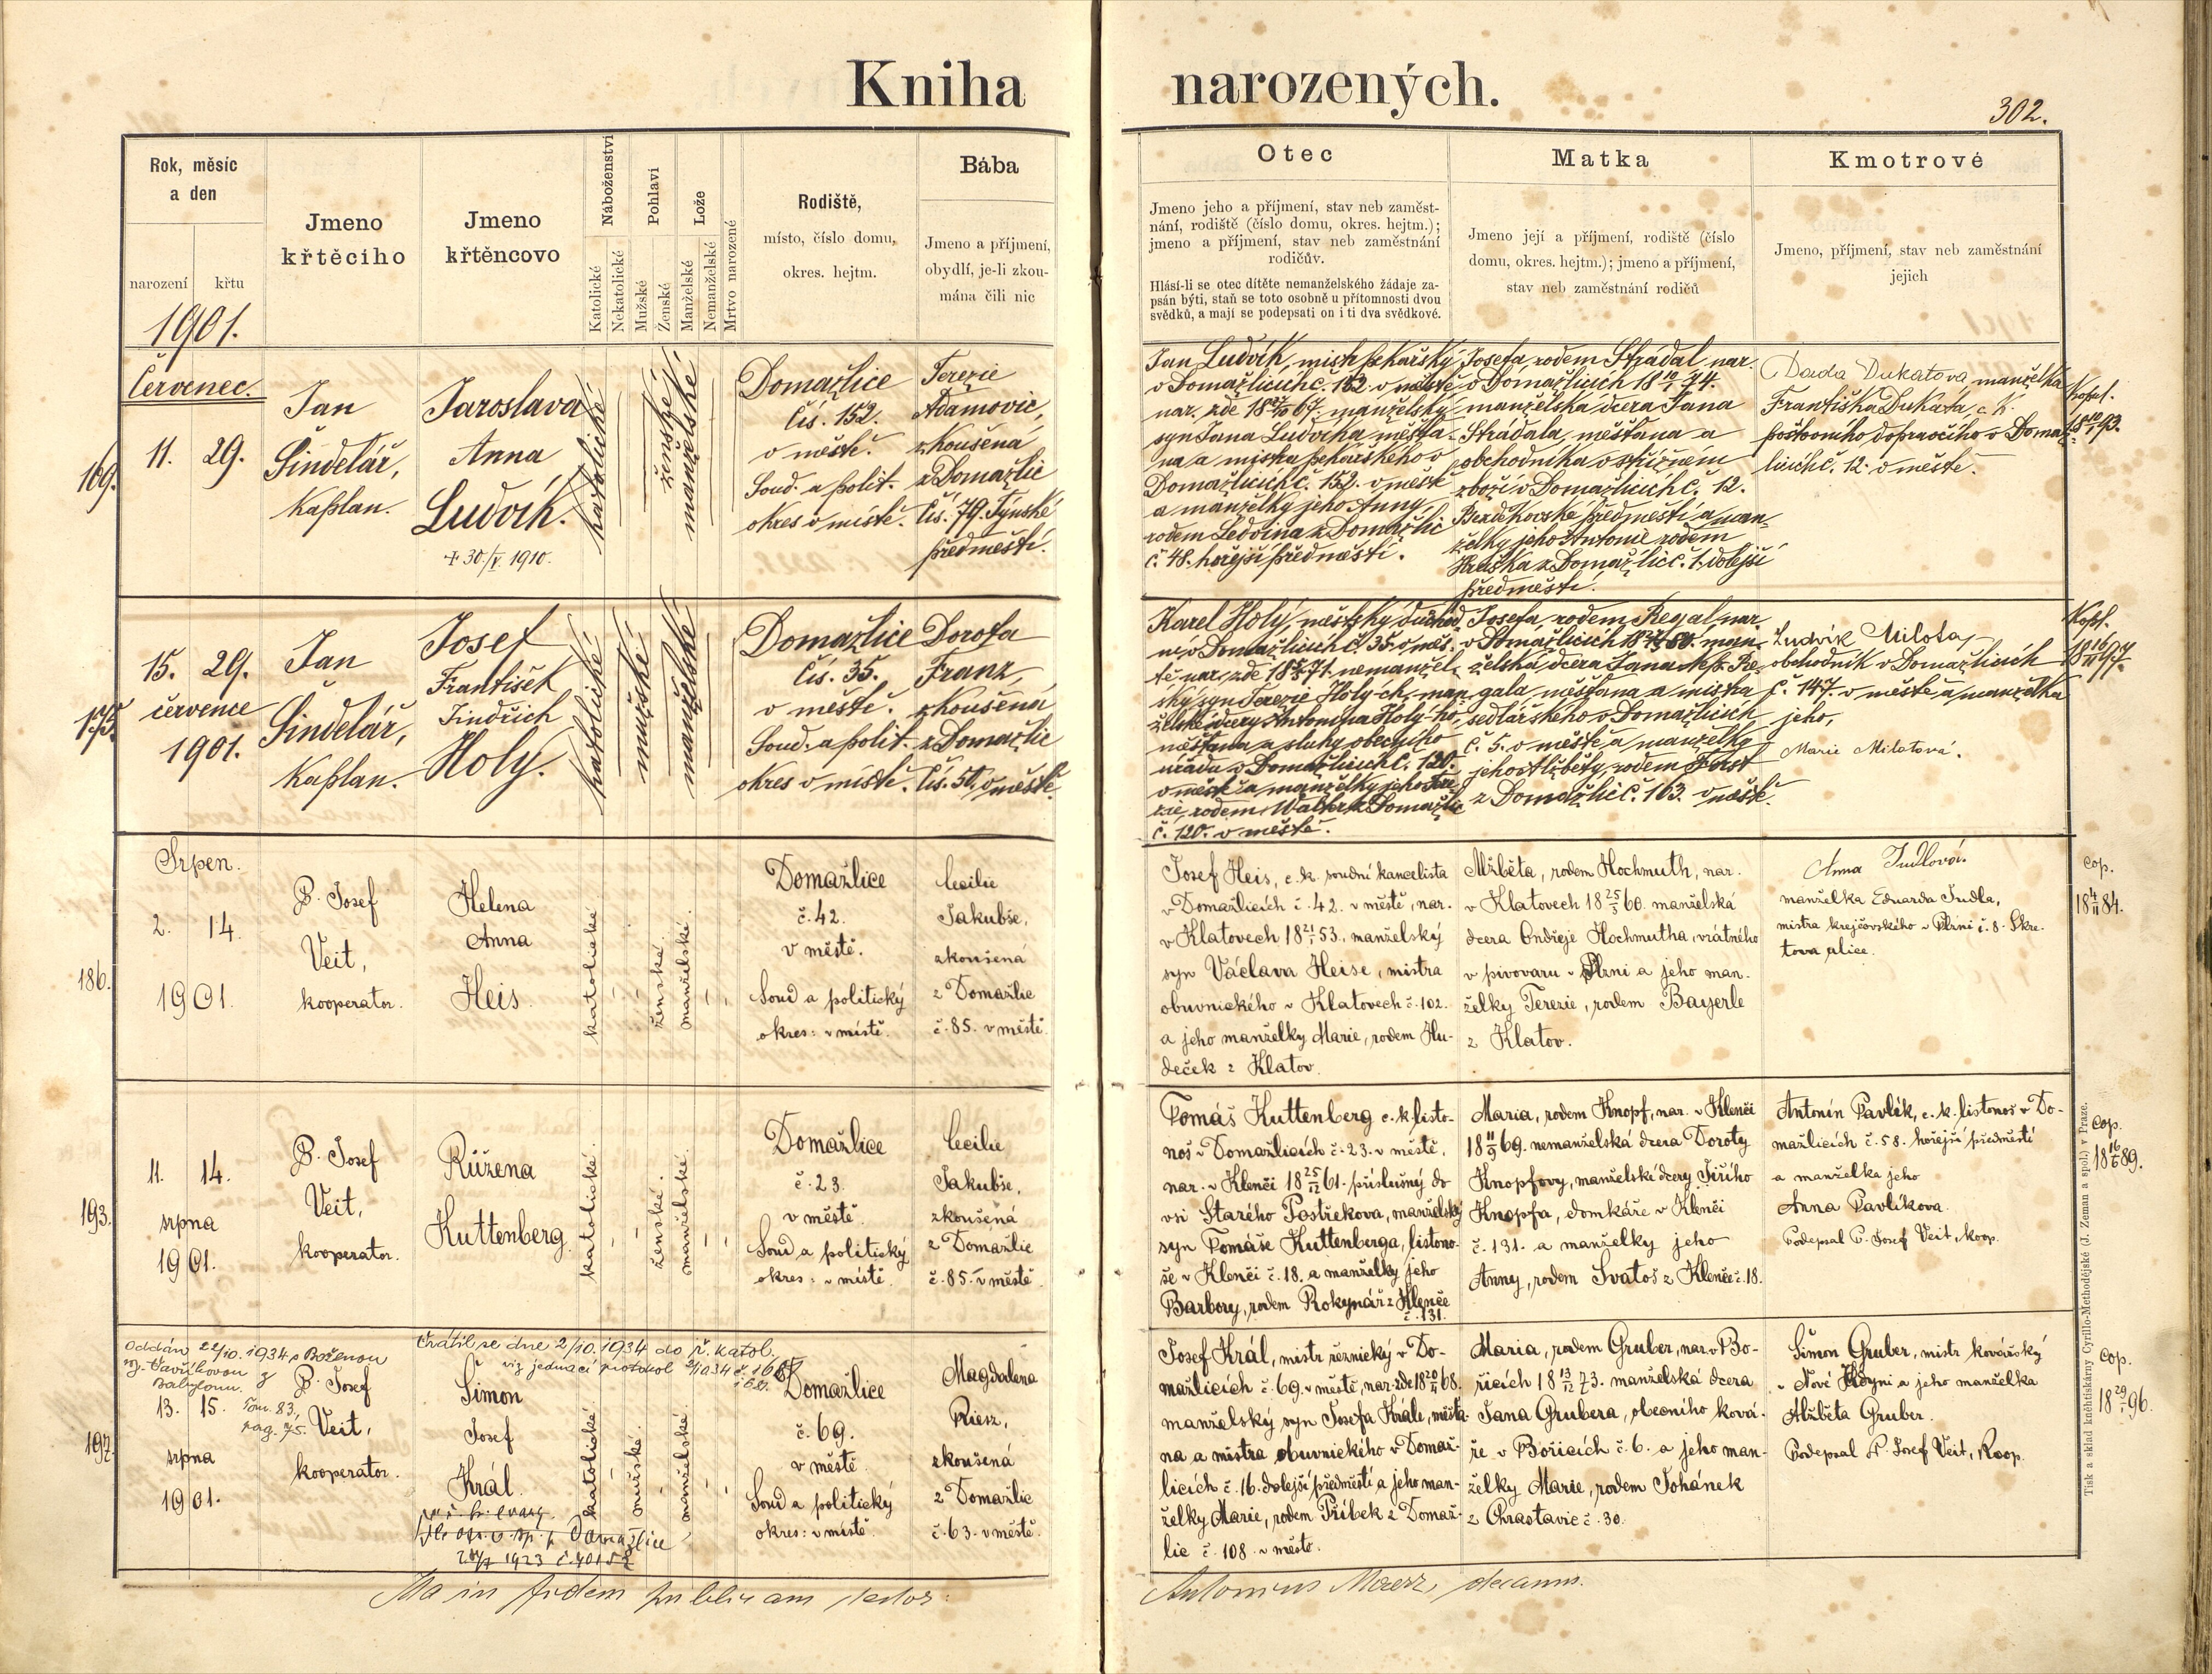 Kniha narozených.
302.
Rok, měsíc
a den
narození křtu
1901.
Jmeno
křtěcího
Jmeno
křtěncovo
Náboženství
Katolické
Nekatolické
Pohlaví
Mužské
Ženské
Lože
Manželské
Nemanželské
Mrtvo narozené
Rodiště,
místo, číslo domu,
okres. hejtm.
Bába
Jmeno a příjmení,
obydlí, je-li zkou-
mána čili nic
Otec
Jmeno jeho a příjmení, stav neb zaměst-
nání, rodiště (číslo domu, okres. hejtm.);
jmeno a příjmení, stav neb zaměstnání
rodičův.
Hlásí-li se otec dítěte nemanželského žádaje za-
psán býti, staň se toto osobně u přítomnosti dvou
svědků, a mají se podepsati on i ti dva svědkové.
Matka
Jmeno její a příjmení, rodiště (číslo
domu, okres. hejtm.); jmeno a příjmení,
stav neb zaměstnání rodičů
Kmotrové
Jmeno, příjmení, stav neb zaměstnání
jejich
169.
Červenec.
11. 29.
Jan
Šindelář,
Kaplan.
Jaroslava
Anna
Ludvík.
+ 30./V. 1910.
katolické
ženské
manželské
Domažlice
čís. 152.
v městě.
Soud. a polit.
okres v místě.
Terezie
Adamovic,
zkoušená
z Domažlic
čís. 79. Týnské
předměstí.
Jan Ludvík, mistr pekařský
v Domažlicích č. 152. v městě
nar. zde 18 67. manželský
syn Jana Ludvíka, měšťa-
na a mistra pekařského v
Domažlicích č. 152. v městě
a manželky jeho Anny,
rodem Ledvina z Domažlic
č. 48. hořejší předměstí.
Josefa, rodem Strádal, nar.
v Domažlicích 18 74.
manželská dcera Jana
Strádala, měšťana a
obchodníka v střižném
zboží v Domažlicích č. 12.
Bezděkovské předměstí a man-
želky jeho Antonie rodem
z Domažlic č. 1. dolejší
předměstí.
Dukátova manželka
Františka Dukáta, c. k.
poštovního dopravčího v Domaž-
licích č. 12. v městě.
Kopul.
18 93.
175.
15. 29.
července
1901.
Jan
Šindelář,
Kaplan.
Josef
František
Jindřich
Holý.
katolické
mužské
manželské
Domažlice
čís. 35.
v městě.
Soud. a polit.
okres v místě.
Dorota
Franz,
zkoušená
z Domažlic
čís. 50. v městě.
Karel Holý, městský důchod-
ní v Domažlicích č. 35. v měs-
tě nar. zde 18 71. nemanžel-
ský syn Terezie Holý-ch, man-
želské dcery Antonína Holý-ho,
měšťana a sluhy obecního
úřadu v Domažlicích č. 120.
v městě a manželky jeho Tere-
zie, rodem z Domažlic
č. 120. v městě.
Josefa, rodem Regal nar.
v Domažlicích 18 80. man-
želská dcera Jana Nep. Re-
gala, měšťana a mistra
sedlářského v Domažlicích
č. 5. v městě a manželky
jeho Alžběty, rodem
z Domažlic č. 163. v městě.
Ludvík Milota,
obchodník v Domažlicích
č. 147. v městě a manželka
jeho,
Marie Milotová.
Kopl.
18 16/II 97.
186.
Srpen.
2. 14.
1901.
P. Josef
Veit,
kooperator.
Helena
Anna
Heis.
katolické
ženské.
manželské.
Domažlice
č. 42.
v městě.
Soud a politický
okres: v místě.
Cecilie
Jakubše,
zkoušená
z Domažlic
č. 85. v městě.
Josef Heis, c. k. soudní kancelista
v Domažlicích č. 42. v městě, nar.
v Klatovech 18 21/1 53., manželský
syn Václava Heise, mistra
obuvnického v Klatovech č. 102.
a jeho manželky Marie, rodem Hu-
deček z Klatov.
Alžběta, rodem Hochmuth, nar.
v Klatovech 18 25/5 60. manželská
dcera Ondřeje Hochmutha, vrátného
v pivovaru v Plzni a jeho man-
želky Terezie, rodem Bayerle
z Klatov.
Anna Indlová.
manželka Eduarda Indla,
mistra krejčovského v Plzni č. 8. Škre-
tova ulice.
cop.
18 4/II 84.
193.
11. 14.
srpna
1901.
P. Josef
Veit,
kooperator.
Růžena
Kuttenberg.
katolické.
ženské.
manželské.
Domažlice
č. 23.
v městě.
Soud a politický
okres: v místě.
Cecilie
Jakubše,
zkoušená
z Domažlic
č. 85. v městě.
Tomáš Kuttenberg c. k. listo-
noš v Domažlicích č. 23. v městě,
nar. v Klenči 18 25/12 61. příslušný do
vsi Starého Postřekova, manželský
syn Tomáše Kuttenberga, listono-
še v Klenči č. 18. a manželky jeho
Barbory, rodem Rokynář z Klenče
č. 131.
Maria, rodem Knopf, nar. v Klenči
18 11/9 69. nemanželská dcera Doroty
Knopfovy, manželské dcery Jiřího
Knopfa, domkáře v Klenči
č. 131. a manželky jeho
Anny, rodem Svatoš z Klenče č. 18.
Antonín Pavlík, c. k. listonoš v Do-
mažlicích č. 58. hořejší předměstí
a manželka jeho
Anna Pavlíkova.
Podepsal P. Josef Veit, koop.
cop.
18 89.
197.
Oddán 22/10. 1934 s Boženou
roz. Vavříkovou z
Babylonu.
Tom. 83,
pag. 75.
13. 15.
srpna
1901.
P. Josef
Veit,
kooperator.
Vrátil se dne 2/10. 1934 do ř. katol.
viz jednací protokol 1934 č.
Šimon
Josef
Král.
Domažlice
1923
katolické
mužské.
manželské.
Domažlice
č. 69.
v městě.
Soud a politický
okres: v místě.
Magdalena
Riesz,
zkoušená
z Domažlic
č. 63. v městě.
Josef Král, mistr řeznický v Do-
mažlicích č. 69. v městě, nar. zde 18 68.
manželský syn Josefa Krále, měšťa-
na a mistra obuvnického v Domaž-
licích č. 16. dolejší předměstí a jeho man-
želky Marie, rodem Příbek z Domaž-
lic č. 108. v městě.
Maria, rodem Gruber, nar. v Bo-
řicích 18 13/12 73. manželská dcera
Jana Grubera, obecního ková-
ře v Bořicích č. 6. a jeho man-
želky Marie, rodem Johánek
z Chrastavic č. 30.
Šimon Gruber, mistr kovářský
v Nové Kdyni a jeho manželka
Alžběta Gruber.
Podepsal P. Josef Veit, koop.
cop.
18 29/1 96.
Ita in fidem publicam testor:
Antonius decanus.
Tisk a sklad knihtiskárny Cyrillo-Methodějské (J. Zeman a spol.) v Praze.